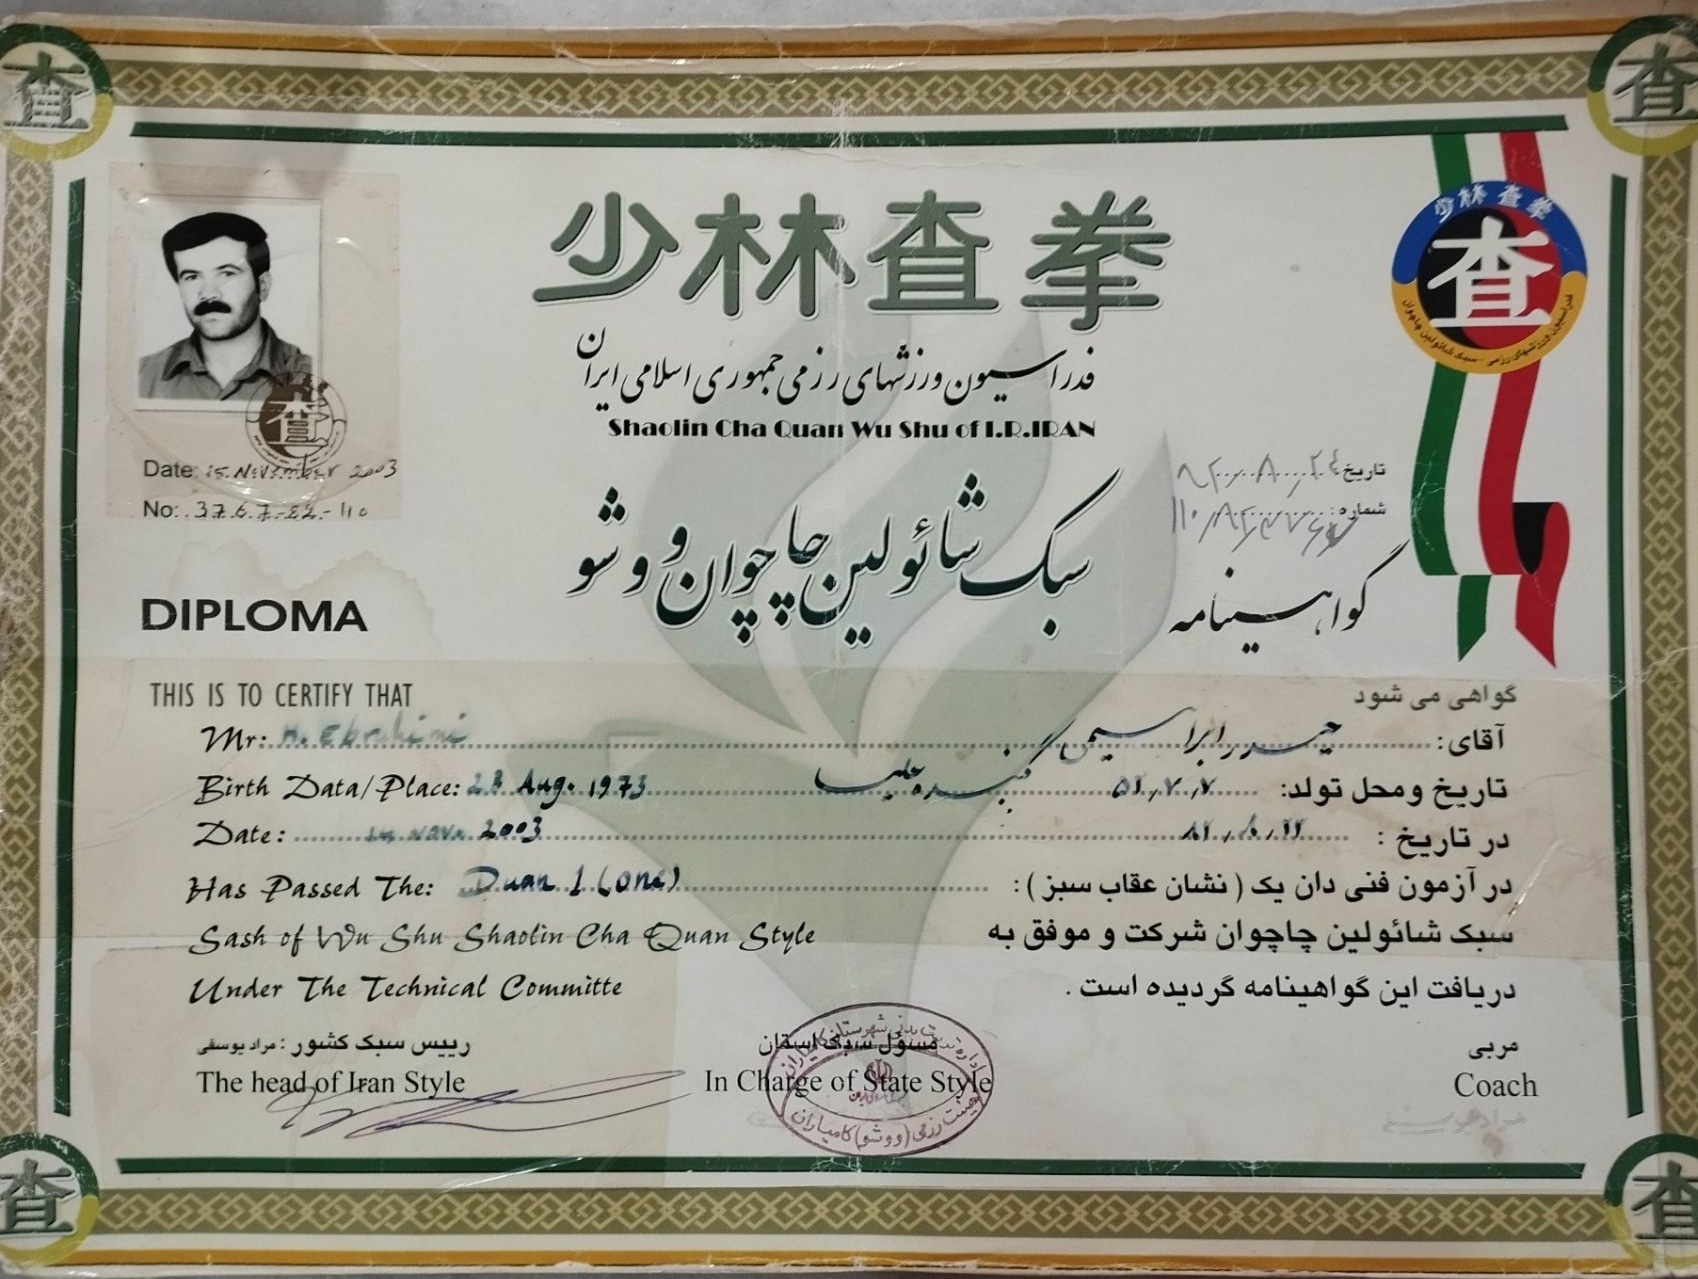 少林查拳
فدراسیون ورزشهای رزمی جمهوری اسلامی ایران
Shaolin Cha Quan Wu Shu of I.R.IRAN
سبک شائولین چاچوان و ووشو
少林查拳
查
Date: 15 November 2003
No: 3767-82-110
تاریخ: ۸۲/۸/۲۴
شماره:
DIPLOMA
گواهینامه
THIS IS TO CERTIFY THAT
گواهی می شود
Mr: H. Ebrahimi
آقای: حیدر ابراهیمی
Birth Data/Place: 23 Aug. 1973
تاریخ و محل تولد: ۵۲/۷/۷
Date: Nov. 2003
در تاریخ:
Has Passed The: Duan 1 (one)
در آزمون فنی دان یک (نشان عقاب سبز):
Sash of Wu Shu Shaolin Cha Quan Style
سبک شائولین چاچوان شرکت و موفق به
Under The Technical Committe
دریافت این گواهینامه گردیده است.
رییس سبک کشور: مراد یوسفی
The head of Iran Style
مسئول سبک استان
In Charge of State Style
مربی
Coach
هیئت رزمی (ووشو) کامیاران